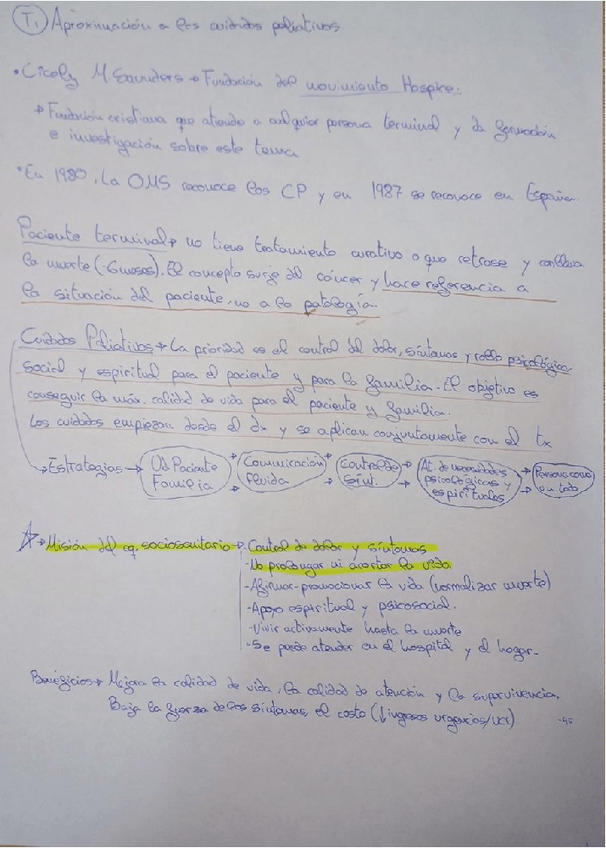 T1 Aproximación a los cuidados paliativos
• Cicely M. Saunders → Fundación del movimiento Hospice.
→ Fundación cristiana que atiende a cualquier persona terminal y da formación
e investigación sobre este tema
• En 1980, la OMS reconoce los CP y en 1987 se reconoce en España.
Paciente terminal → no tiene tratamiento curativo o que retrase y conlleva
la muerte (-6 meses). El concepto surge del cáncer y hace referencia a
la situación del paciente, no a la patología.
Cuidados Paliativos → La prioridad es el control del dolor, síntomas y psicológica
social y espiritual para el paciente y para la familia. El objetivo es
conseguir la máx. calidad de vida para el paciente y familia.
Los cuidados empiezan desde el dx y se aplican conjuntamente con el tx
→ Estrategias → Ud Paciente Familia → Comunicación fluida → Control de sínt. → At. de necesidades psicológicas y espirituales → Persona como un todo
☆ → Misión del eq. sociosanitario → Control de dolor y síntomas
- No prolongar ni acortar la vida
- Afirmar-promocionar la vida (normalizar muerte)
- Apoyo espiritual y psicosocial.
- Vivir activamente hasta la muerte
- Se puede atender en el hospital y el hogar.
Beneficios → Mejora la calidad de vida, la calidad de atención y la supervivencia.
Baja la fuerza de los síntomas, el costo (↓ ingresos urgencias/uci)